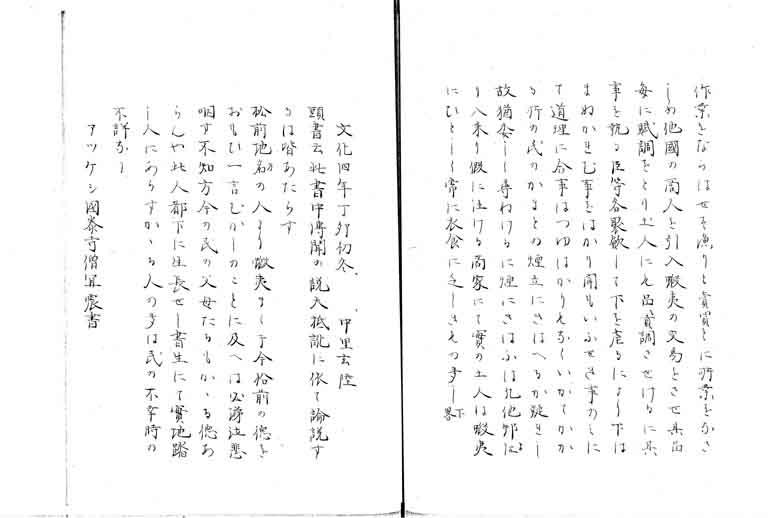 作業をならはせて漁りと賣買とに作業をなさ
しめ他國の商人を引入蝦夷の交易をさせ其品
毎に賦調をとり土人にも品賣調させけるに其
事を執る臣等各聚斂して下を虐るにより下は
まぬかれむ事をはかり聞もいふせき事のみに
て道理に合事はつゆはかりもなくいかてかか
る行の民のかまとの煙立にきはへるか疑はし
故猶委しく尋ねけるに煙にきはふは凡他邦よ
り入来り假に住ける商家にて實の土人は蝦夷
にひとしく常に衣食に乏しきもの多し 下略
文化四年丁卯初冬 中里玄陸
頭書云此書中傳聞の説大抵訛に依て論説す
るは皆あたらす
松前地名の人より蝦夷まて于今松前の德を
おもひ一言むかしのことに及へは必涕泣悲
咽す不知方今の民の父母たるもかゝる德あ
らんや此人都下に生長せし書生にて實地踏
し人にあらすかゝる人の多は民の不幸時の
不詳なり
アツケシ國泰寺僧 震書